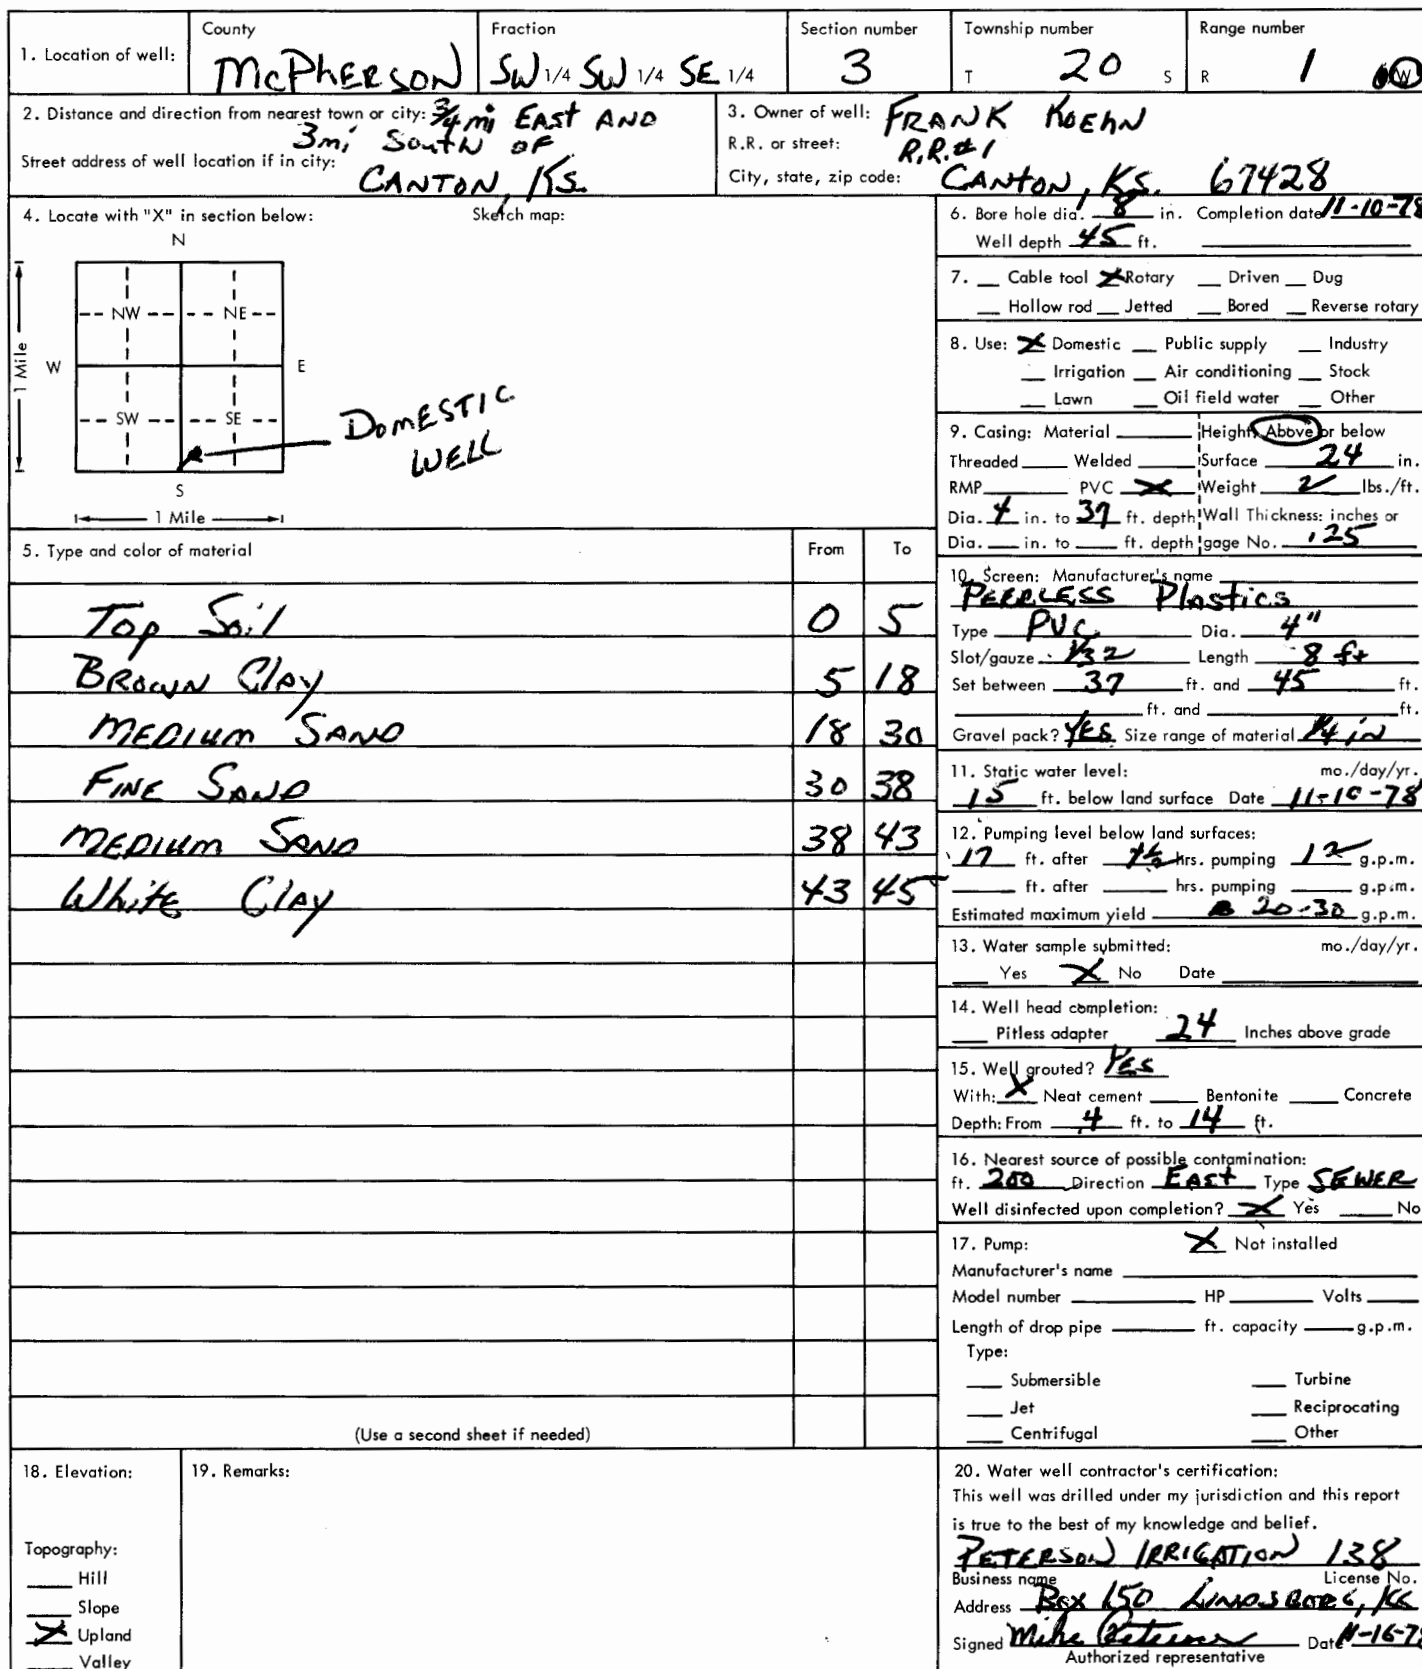 1. Location of well: County McPHERSON Fraction SW 1/4 SW 1/4 SE 1/4 Section number 3 Township number T 20 S Range number R 1 W
2. Distance and direction from nearest town or city: 3/4 mi EAST AND
3mi South OF
Street address of well location if in city: CANTON, KS.
3. Owner of well: FRANK KOEHN
R.R. or street: R.R.#1
City, state, zip code: CANTON, KS. 67428
4. Locate with "X" in section below: Sketch map:
N
NW NE
W E
1 Mile
SW SE
S
1 Mile
DOMESTIC
WELL
5. Type and color of material From To
Top Soil 0 5
BROWN Clay 5 18
MEDIUM SAND 18 30
FINE SAND 30 38
MEDIUM SAND 38 43
White Clay 43 45
(Use a second sheet if needed)
6. Bore hole dia. 8 in. Completion date 11-10-78
Well depth 45 ft.
7. __ Cable tool X Rotary __ Driven __ Dug
__ Hollow rod __ Jetted __ Bored __ Reverse rotary
8. Use: X Domestic __ Public supply __ Industry
__ Irrigation __ Air conditioning __ Stock
__ Lawn __ Oil field water __ Other
9. Casing: Material ____ Height: Above or below
Threaded ____ Welded ____ Surface 24 in.
RMP ____ PVC X Weight 2 lbs./ft.
Dia. 4 in. to 37 ft. depth Wall Thickness: inches or
Dia. ___ in. to ___ ft. depth gage No. .125
10. Screen: Manufacturer's name
PEERLESS Plastics
Type PVC Dia. 4"
Slot/gauze 1/32 Length 8 ft
Set between 37 ft. and 45 ft.
____ ft. and ____ ft.
Gravel pack? YES Size range of material 1/4 in
11. Static water level: mo./day/yr.
15 ft. below land surface Date 11-10-78
12. Pumping level below land surfaces:
17 ft. after hrs. pumping 12 g.p.m.
____ ft. after ____ hrs. pumping ____ g.p.m.
Estimated maximum yield 20-30 g.p.m.
13. Water sample submitted: mo./day/yr.
__ Yes X No Date ____
14. Well head completion:
__ Pitless adapter 24 Inches above grade
15. Well grouted? YES
With: X Neat cement ___ Bentonite ___ Concrete
Depth: From 4 ft. to 14 ft.
16. Nearest source of possible contamination:
ft. 200 Direction EAST Type SEWER
Well disinfected upon completion? X Yes ___ No
17. Pump: X Not installed
Manufacturer's name ____
Model number ____ HP ____ Volts ____
Length of drop pipe ____ ft. capacity ____ g.p.m.
Type:
__ Submersible __ Turbine
__ Jet __ Reciprocating
__ Centrifugal __ Other
18. Elevation:
Topography:
__ Hill
__ Slope
X Upland
__ Valley
19. Remarks:
20. Water well contractor's certification:
This well was drilled under my jurisdiction and this report
is true to the best of my knowledge and belief.
PETERSON IRRIGATION 138
Business name License No.
Address Box 150 LINDSBORG, KS
Signed Mike Peterson Date 11-16-78
Authorized representative